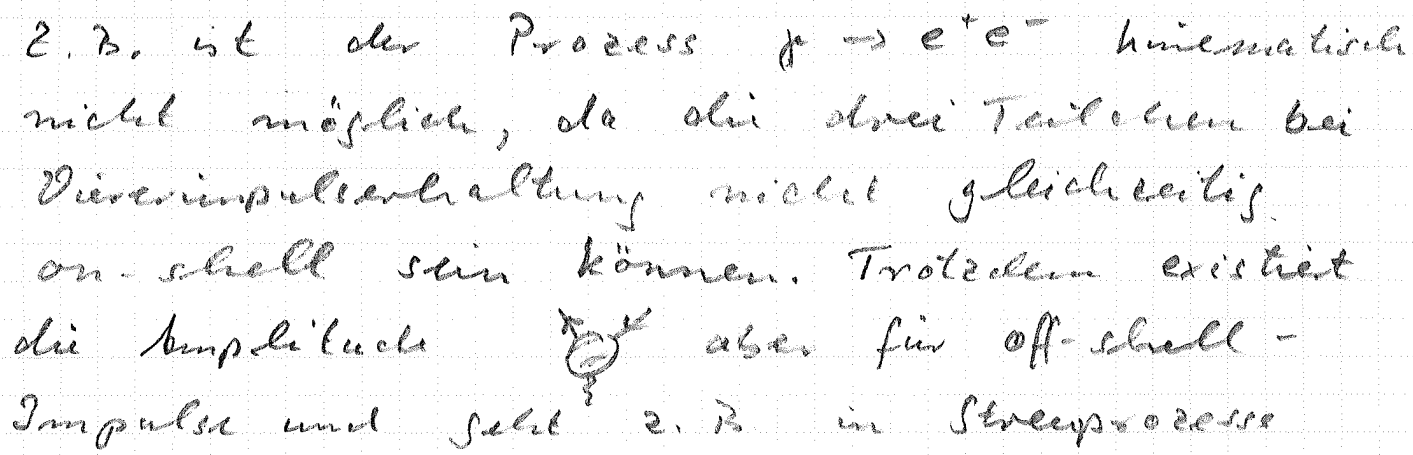 Z.B. ist der Prozess γ → e⁺e⁻ kinematisch
nicht möglich, da die drei Teilchen bei
Viererimpulserhaltung nicht gleichzeitig
on-shell sein können. Trotzdem existiert
die Amplitude aber für off-shell-
Impulse und geht z.B in Streuprozesse